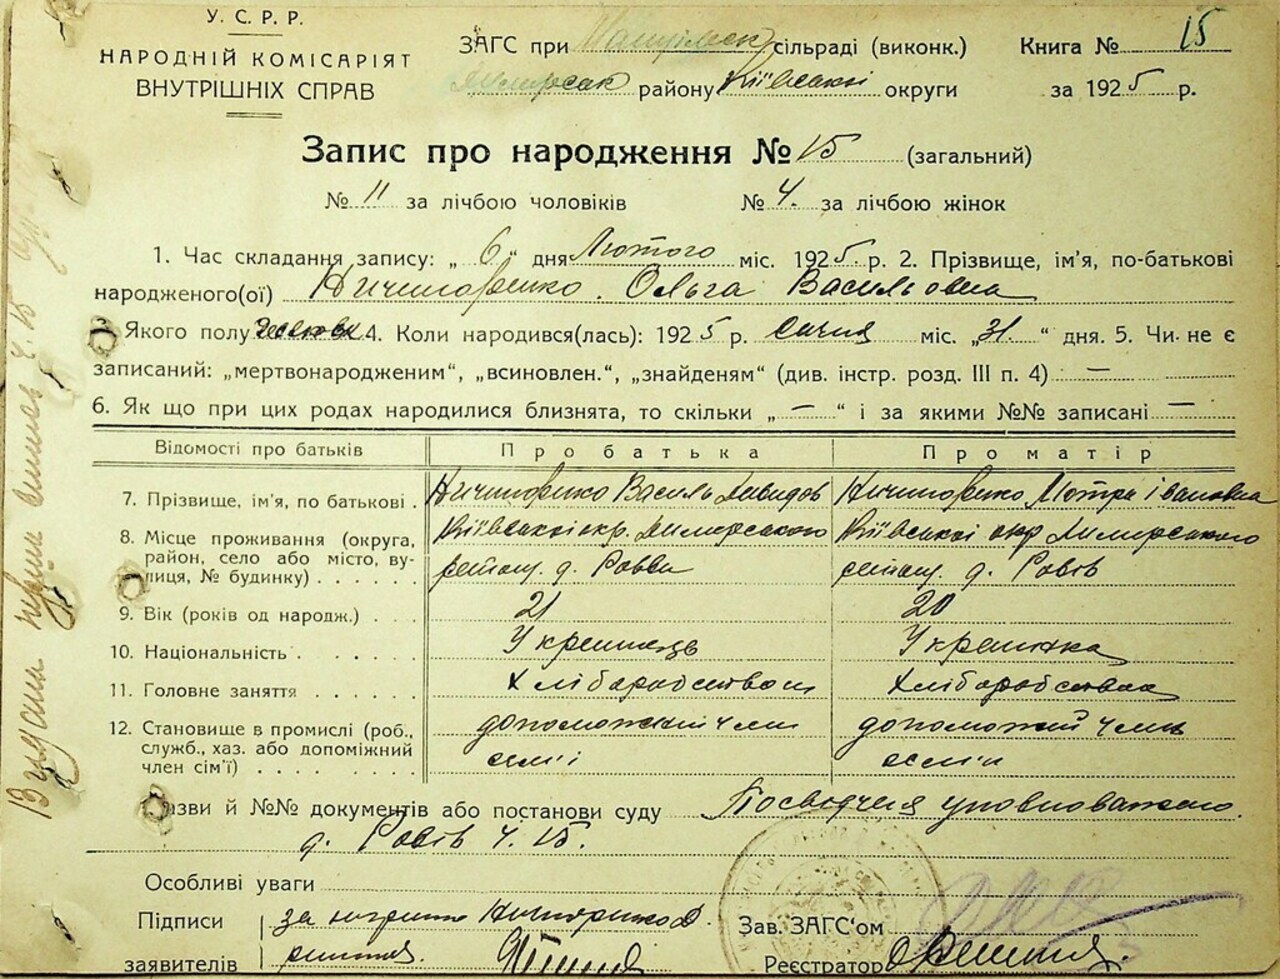 У. С. Р. Р.
НАРОДНІЙ КОМІСАРІЯТ
ВНУТРІШНІХ СПРАВ
ЗАГС при сільраді (виконк.)
району Київської округи
Книга № 15
за 1925 р.
Запис про народження № 15 (загальний)
№ 11 за лічбою чоловіків № 4. за лічбою жінок
1. Час складання запису: „ 6 “ дня Лютого міс. 1925. р. 2. Прізвище, ім'я, по-батькові
народженого(ої) Ничипоренко. Ольга Васильовна
3. Якого полу 4. Коли народився(лась): 1925 р. Січня міс. „31.“ дня. 5. Чи не є
записаний: „мертвонародженим“, „всиновлен.“, „знайденям“ (див. інстр. розд. III п. 4) —
6. Як що при цих родах народилися близнята, то скільки „ — “ і за якими №№ записані —
Відомості про батьків Про батька Про матір
7. Прізвище, ім'я, по батькові . Ничипоренко Василь Давидов Ничипоренко Мотря Івановна
8. Місце проживання (округа, Київської окр. Димирського Київської окр Димирського
район, село або місто, ву-
лиця, № будинку) . . . . . . д. д. Ровів
9. Вік (років од народж.) . . . 21 20
10. Національність . . . . . . Українець Українка
11. Головне заняття . . . . . . Хліборобством
12. Становище в промислі (роб., допоможний член допоможний член
служб., хаз. або допоміжний
член сім'ї) . . . . . . . . сем'ї сем'ї
Назви й №№ документів або постанови суду Посвідчення уповноваженого
д. Ровів ч. 15.
Особливі уваги
Підписи за
заявителів
Зав. ЗАГС'ом
Реєстратор